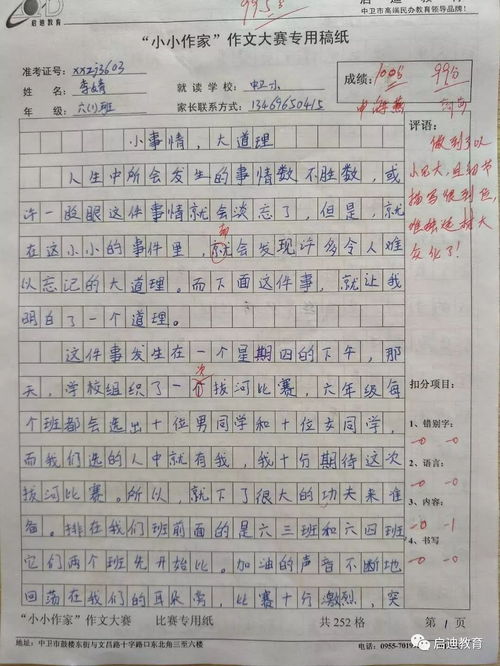 启迪教育
99.5
启迪教育
中卫市高端民办教育领导品牌!
“小小作家”作文大赛专用稿纸
准考证号: xxzj3603
姓名: 李婧
就读学校: 中卫小
年级: 六(1)班
家长联系方式: 13469650415
成绩: 100分 99分
小事情,大道理
人生中所会发生的事情数不胜数,或
许一眨眼这件事情就会淡忘了,但是,就
在这小小的事件里,就会发现许多令人难
以忘记的大道理。而下面这件事,就让我
明白了一个道理。
这件事发生在一个星期四的下午,那
次
天,学校组织了一个拔河比赛,六年级每
个班都会选出十位男同学和十位女同学,
而我们选的人中就有我,我十分期待这次
拔河比赛。所以,就下了很大的功夫来准
备。排在我们班前面的是六三班和六四班
它们两个班先开始比。加油的声音不断地
回荡在我们的耳朵旁,比赛十分激烈,突
评语:
做到了以
小见大,且细节
描写很到位,
难掩这材大
众化了!
扣分项目:
1、错别字:
-0 -0
2、语言:
-0 -0
3、内容:
-0 -1
4、书写
-0 -0
“小小作家”作文大赛 比赛专用纸 共252格 第1页
地址: 中卫市鼓楼东街与文昌路十字路口东北角三至六楼
电话: 0955-7019
启迪教育